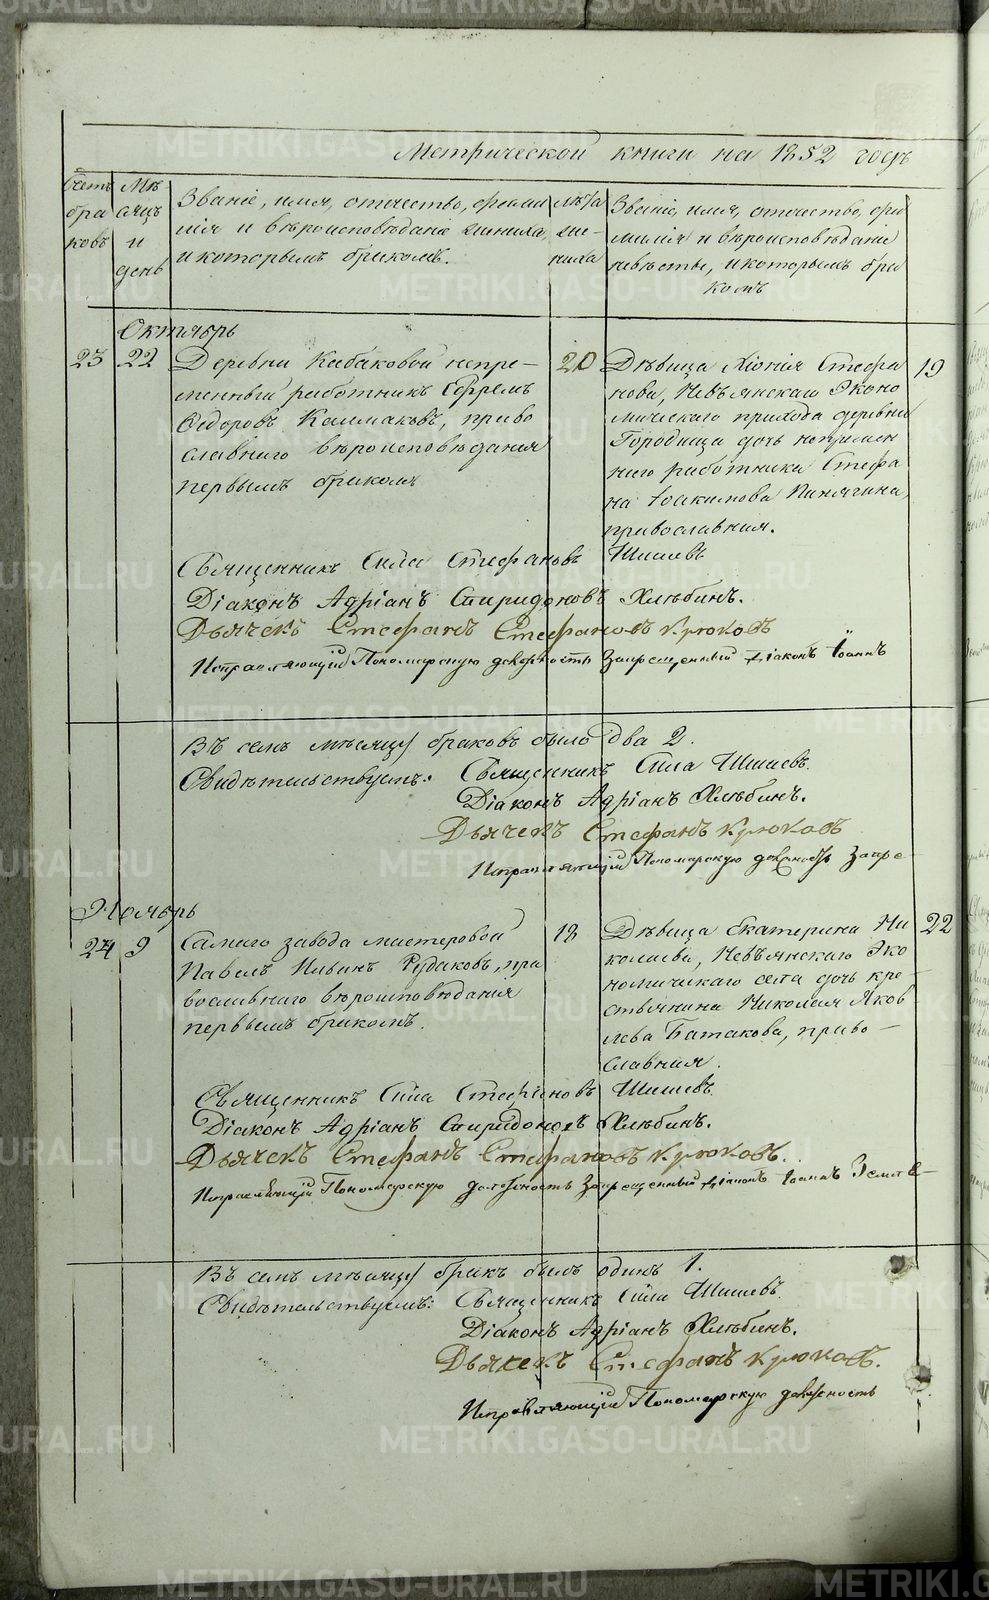 METRIKI.GASO-URAL.RU
Метрической книги на 1852 годъ
Счетъ браковъ
Мѣсяцъ и день
Званіе, имя, отчество, фами
лія и вѣроисповѣданіе жениха,
и которымъ бракомъ.
Лѣта
же-
ниха
Званіе, имя, отчество, фа
милія и вѣроисповѣданіе
невѣсты, и которымъ бра
комъ
Октябрь
23 22
Деревни Кабаковой непре-
менный работникъ Ефремъ
Федоровъ Калмаковъ, право
славнаго вѣроисповѣдания
первымъ бракомъ
20
Дѣвица Хіонія Стефа
нова, Невьянскаго Эконо
мическаго прихода деревни
Городища дочь непремен
наго работника Стефа
на Іоакимова Пинягина,
православная.
19
Священникъ Сила Стефановъ Шишевъ
Діаконъ Адріанъ Спиридоновъ Хлѣбинъ.
Дьячекъ Стефанъ Стефановъ Крюковъ
Исправляющій Пономарскую должность Запрещенный діаконъ Іоаннъ
Въ семъ мѣсяцѣ браковъ было два 2.
Свидѣтельствуемъ: Священникъ Сила Шишевъ.
Діаконъ Адріанъ Хлѣбинъ.
Дьячекъ Стефанъ Крюковъ
Исправляющій Пономарскую должность Запре-
Ноябрь
24 9
Самаго завода мастеровой
Павелъ Ильинъ Рудаковъ, пра
вославнаго вѣроисповѣдания
первымъ бракомъ.
18
Дѣвица Екатерина Ни
колаева, Невьянскаго Эко
номическаго села дочь кре-
стьянина Николая Яков
лева Батакова, право-
славная.
22
Священникъ Сила Стефановъ Шишевъ.
Діаконъ Адріанъ Спиридоновъ Хлѣбинъ.
Дьячекъ Стефанъ Стефановъ Крюковъ.
Исправляющій Пономарскую должность Запрещенный діаконъ Іоаннъ
Въ семъ мѣсяцѣ бракъ былъ одинъ 1.
Свидѣтельствуемъ: Священникъ Сила Шишевъ.
Діаконъ Адріанъ Хлѣбинъ.
Дьячекъ Стефанъ Крюковъ.
Исправляющій Пономарскую должность